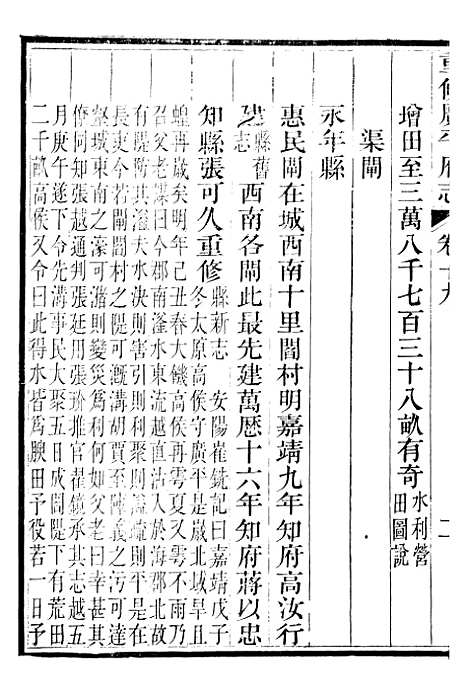 重修廣平府志
卷十九
二
增田至三萬八千七百三十八畝有奇水利營
田圖說
渠閘
永年縣
惠民閘在城西南十里閻村明嘉靖九年知府高汝行
建縣舊
志西南各閘此最先建萬曆十六年知府蔣以忠
知縣張可久重修縣新志 安陽崔銑記曰嘉靖戊子
冬太原高侯守廣平是歲北域旱且
蝗再歲矣明年己丑春大饑高侯再雩夏又雩不雨乃
召父老曰今郡南滏水東流越直沽入於海郡北
有隄防其溢夫水決則害引則利聚則溢疏則平
長吏今若閘閻村之隄可溉溝胡賈至陣義之污可達
壑城東南之濠可瀦則變災爲利何如父老曰甚其
僚同知張越通判張廷用張玠推官翟鏡承其志越五
月庚午遂下令先溝事民大聚五日成閘隄下有荒田
二千畝高侯又令曰此得水皆爲腴田予役若一日予